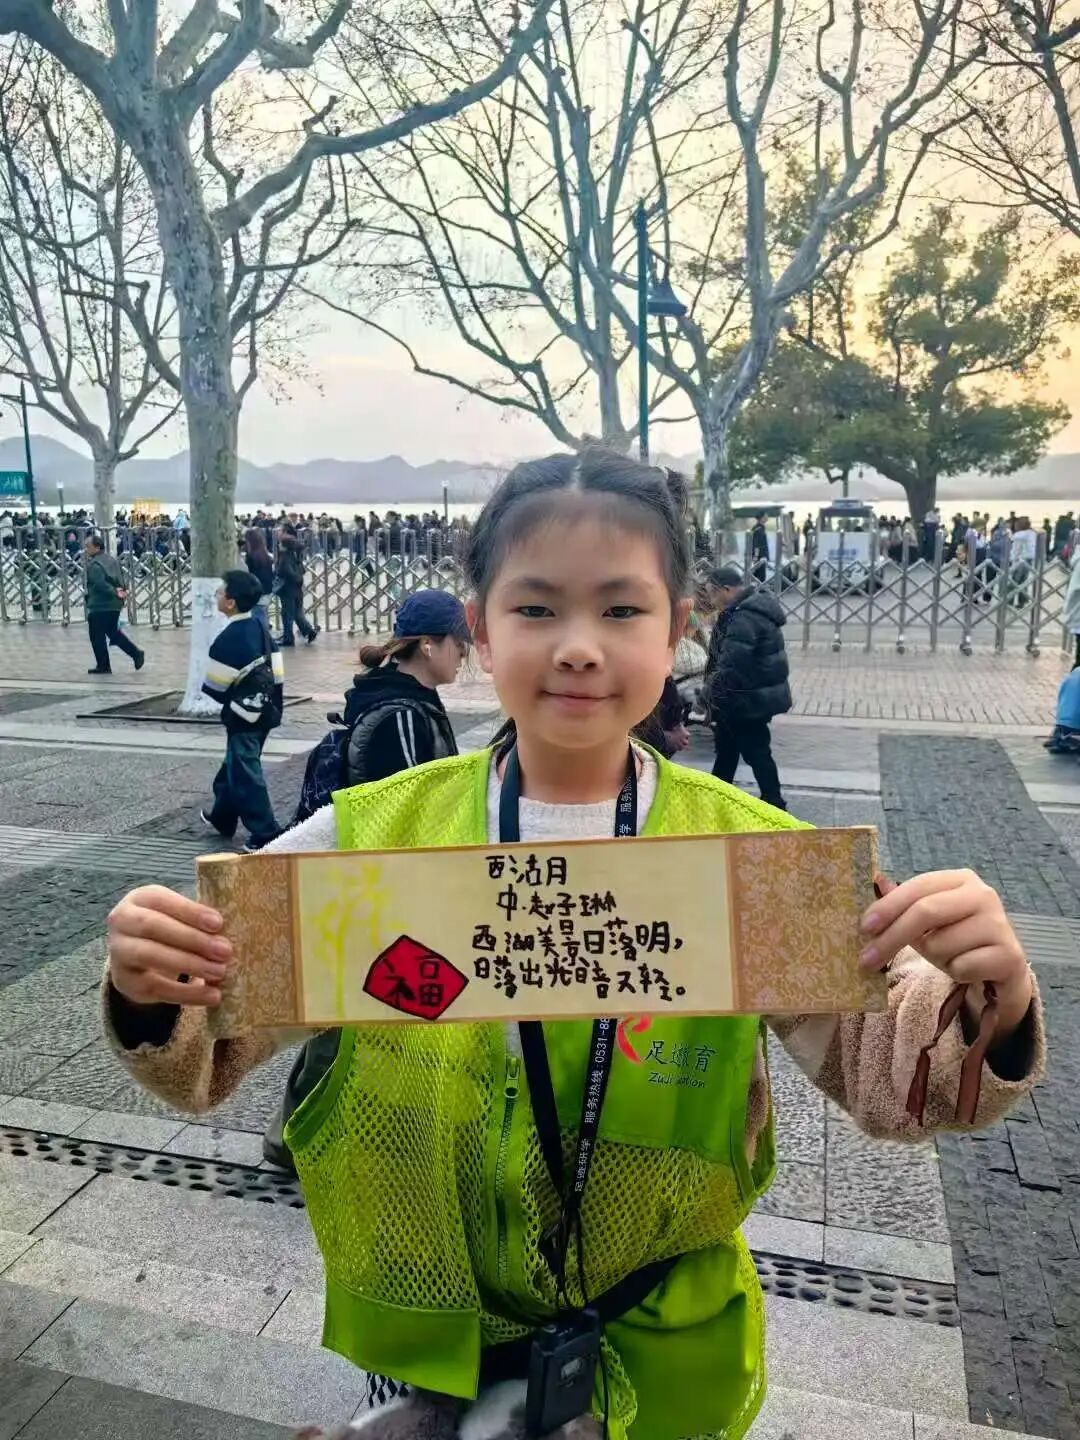 西湖
中.赵子琳
西湖美景日落明，
日落出光暗又轻。
福
足迹育
ZuJi
足迹研学 服务热线:0531-88
学 服务